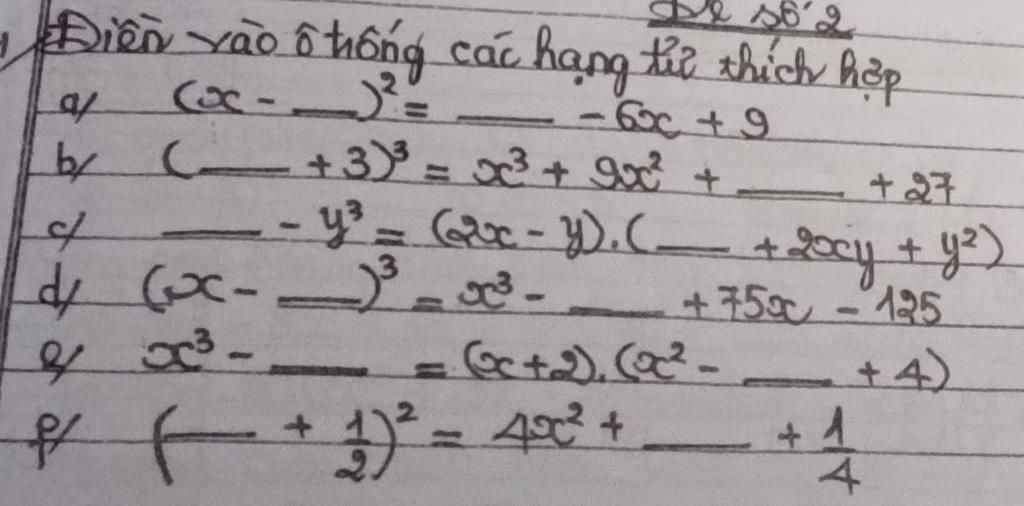 Đề số 2
1/ Điền vào ô thống các hạng tử thích hợp
a/ (x - ___)² = ___ - 6x + 9
b/ (___ + 3)³ = x³ + 9x² + ___ + 27
c/ ___ - y³ = (2x - y).(___ + 2xy + y²)
d/ (x - ___)³ = x³ - ___ + 75x - 125
e/ x³ - ___ = (x + 2).(x² - ___ + 4)
f/ (___ + 1/2)² = 4x² + ___ + 1/4